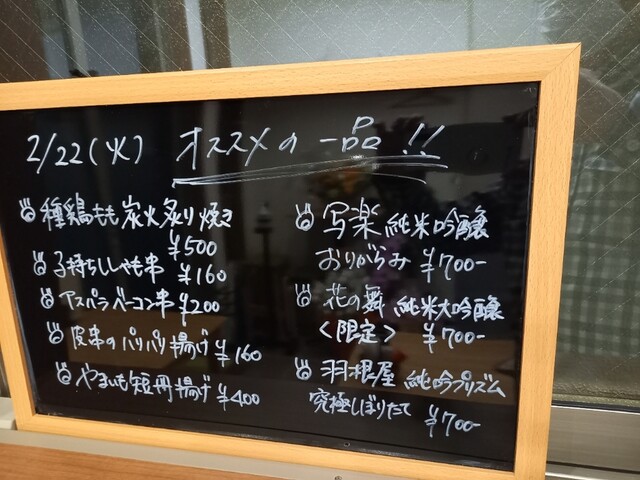 2/22(火) オススメの一品!!
種鶏もも炭火炙り焼き
¥500
子持ちししゃも串 ¥160
アスパラベーコン串 ¥200
皮串のパリパリ揚げ ¥160
やまいも短冊揚げ ¥400
写楽 純米吟醸
おりがらみ ¥700-
花の舞 純米大吟醸
<限定> ¥700-
羽根屋 純吟プリズム
究極しぼりたて ¥700-